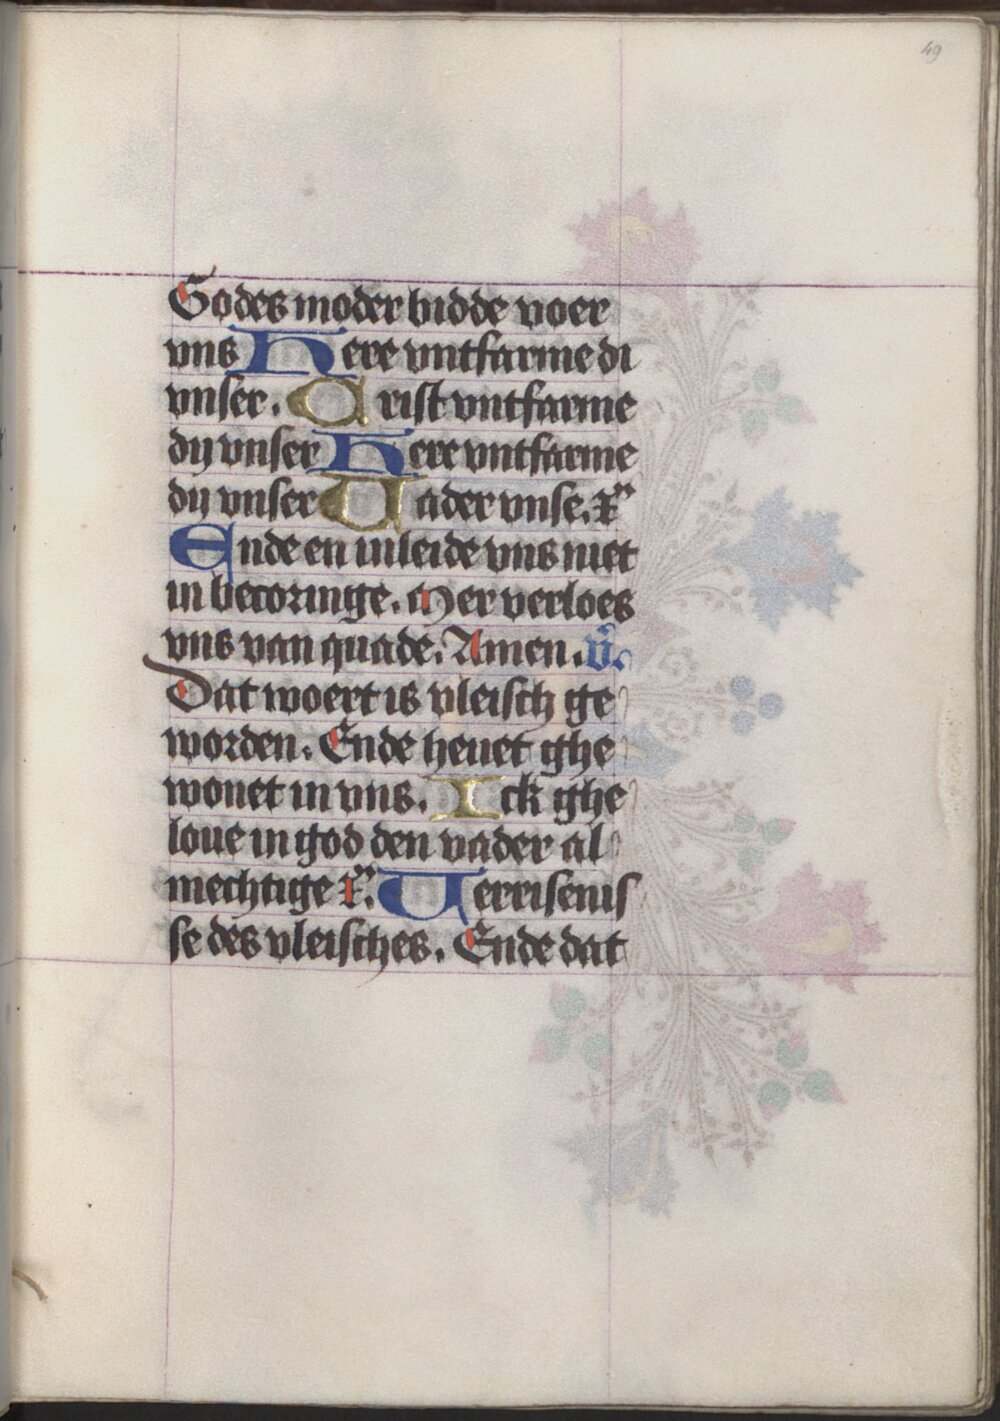 49
Godes moder bidde voer
vns Here vntfarme di
vnser. Crist vntfarme
dij vnser Here vntfarme
dij vnser Vader vnse. xͬ
Ende en inleide vns niet
in becoringe. Mer verloes
vns van quade. Amen. v̉.
Dat woert is vleisch ge
worden. Ende heuet ghe
wonet in vns. Ick ghe
loue in god den vader al
mechtige xͬ. Verrisenis
se des vleisches. Ende dat